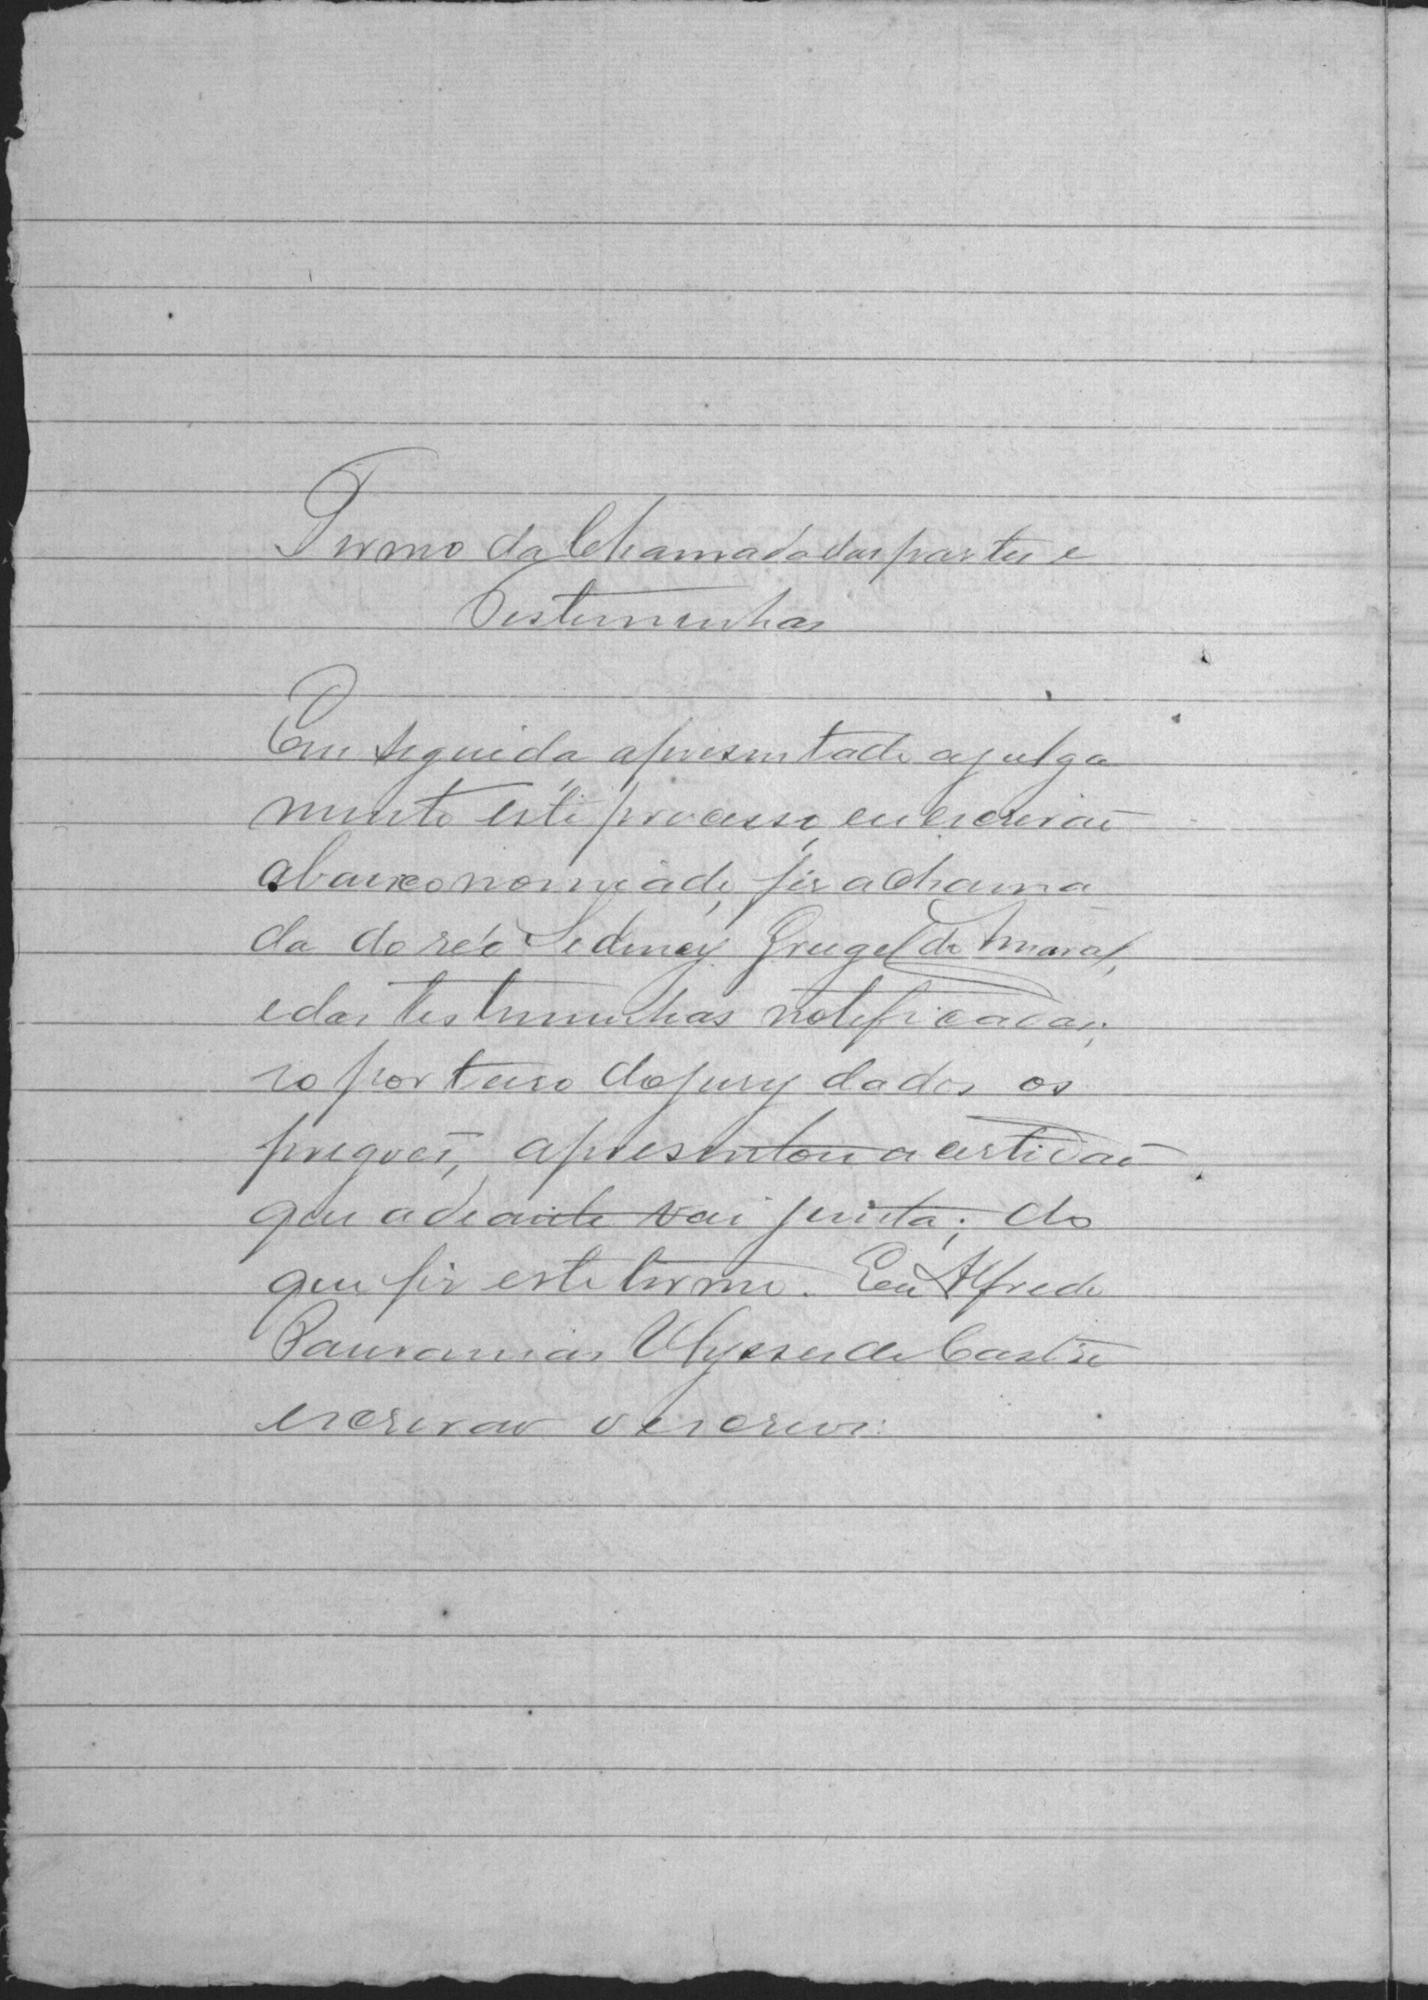 Termo da Chamada das partes e
Testemunhas
Em seguida apresentado a julga
mento este processo, eu escrivão
abaixo nomeado, fiz a chama
da do réo Sidney Grugel do Amaral,
e das testemunhas notificadas;
e o porteiro do jury dados os
pregões, apresentou a certidão
que adeante vai junta; do
que fiz este termo. Eu Alfredo
Pausanias Ulysses de Castro
escrivão o escrevi.